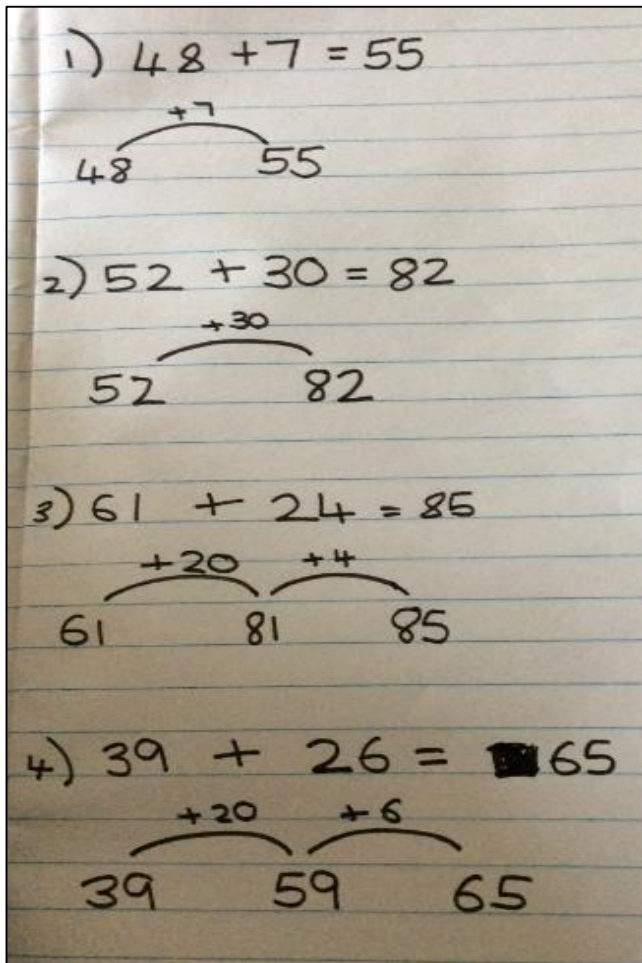 1) 48 + 7 = 55
+7
48 55
2) 52 + 30 = 82
+30
52 82
3) 61 + 24 = 85
+20 +4
61 81 85
4) 39 + 26 = 65
+20 +6
39 59 65